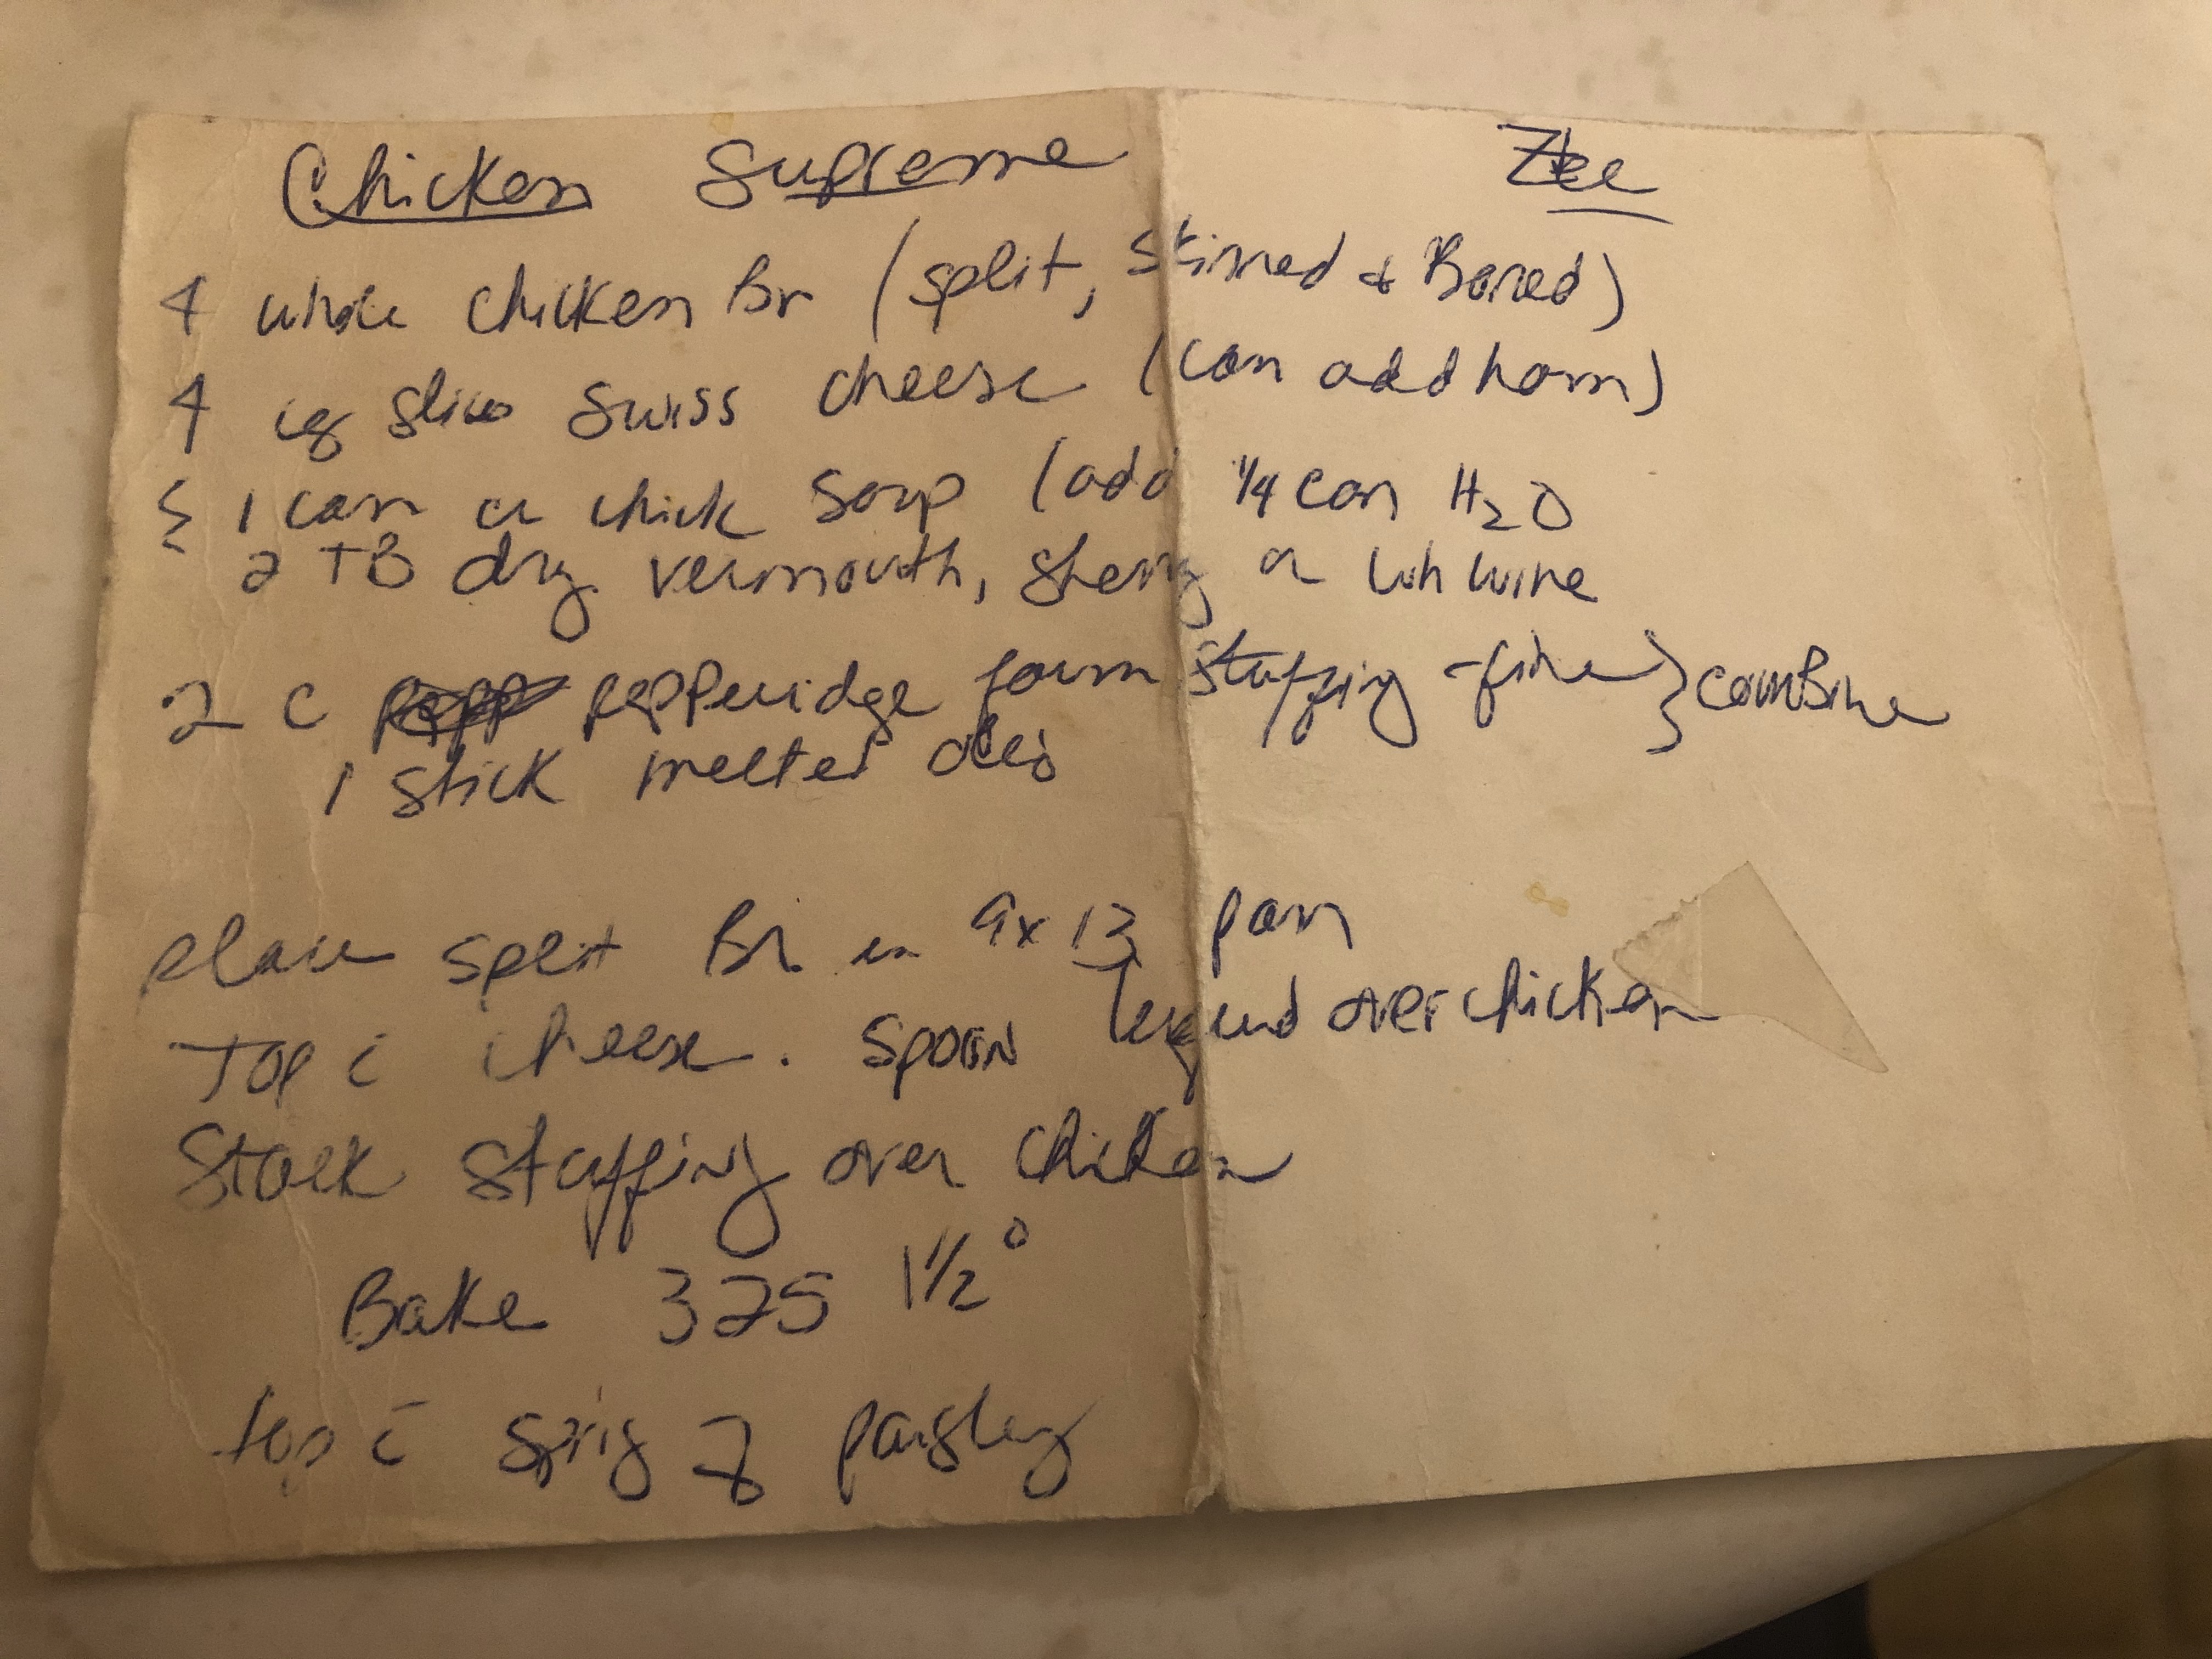 Chicken Supreme Zee
4 whole chicken Br (split, skinned & Boned)
4 lg slice swiss cheese (can add ham)
1 can cr chick soup (add 1/4 can H2O
2 TB dry vermouth, sherry or wh wine
2 c pepperidge farm stuffing - fine } combine
1 stick melted oleo
place split Br in 9x13 pan
Top c̄ cheese. spoon liquid over chicken
Stack stuffing over chicken
Bake 325 1 1/2°
top c̄ sprig of parsley